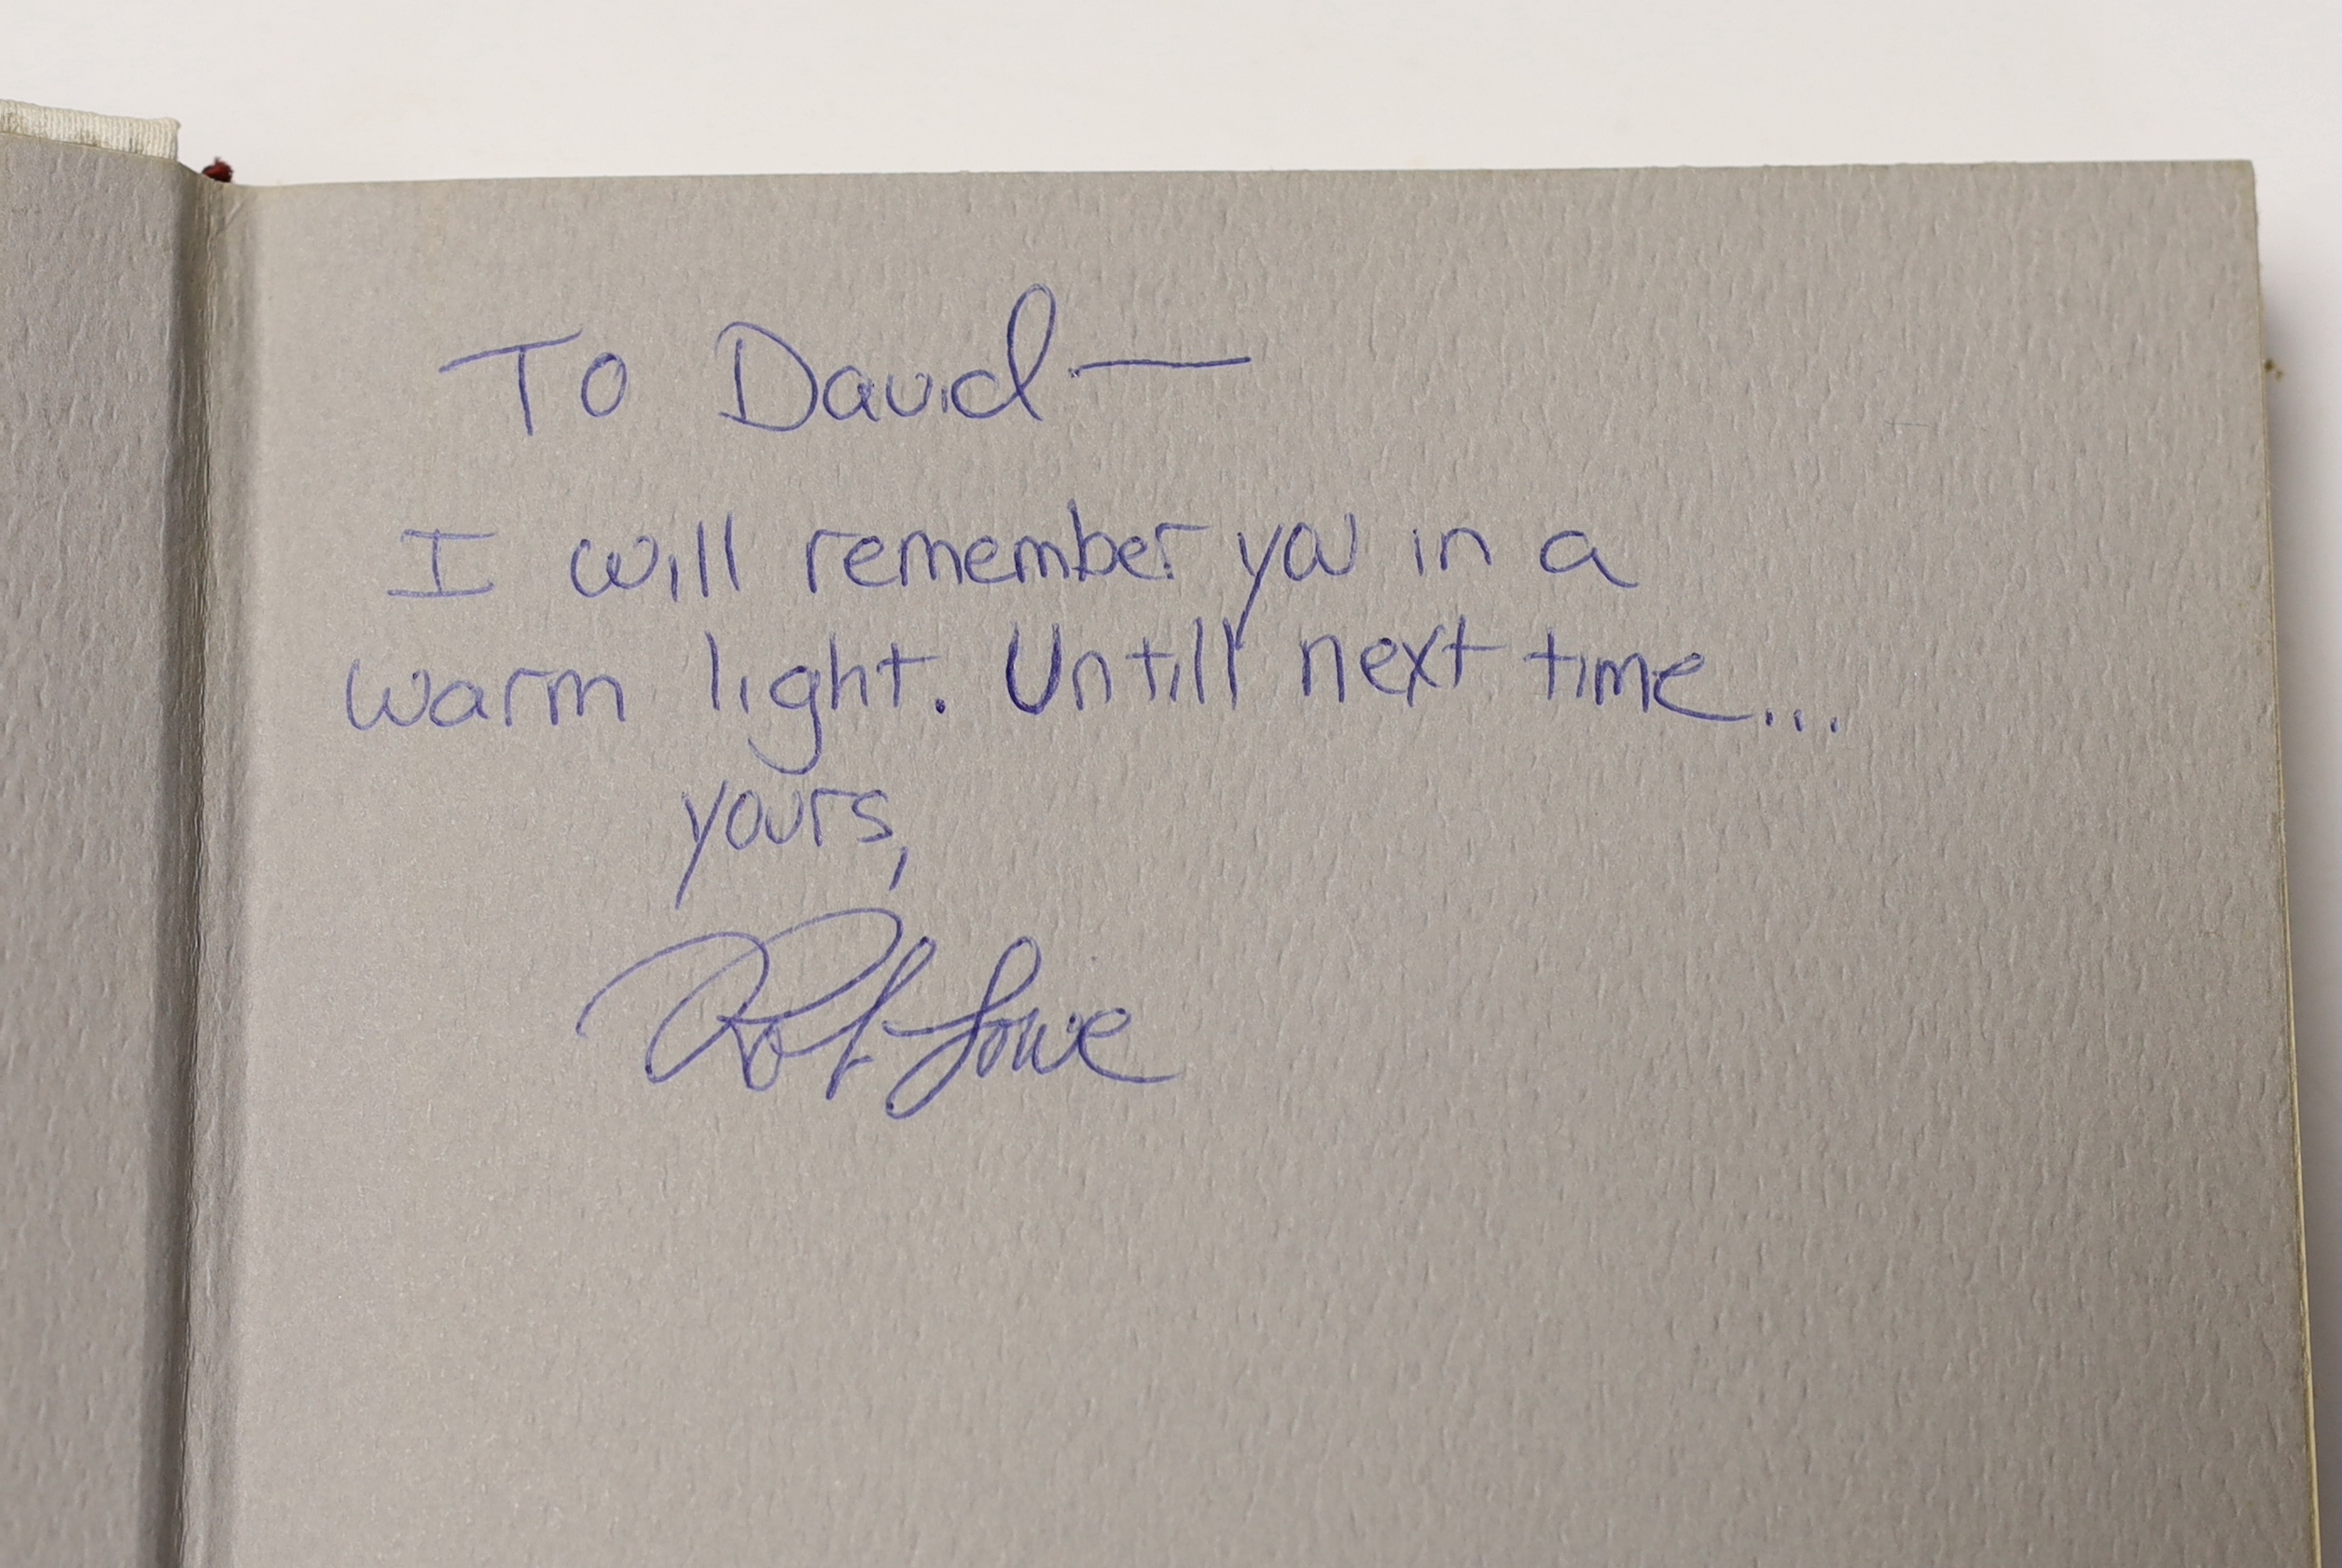 To David—
I will remember you in a
warm light. Untill next time...
yours,
Rob Lowe